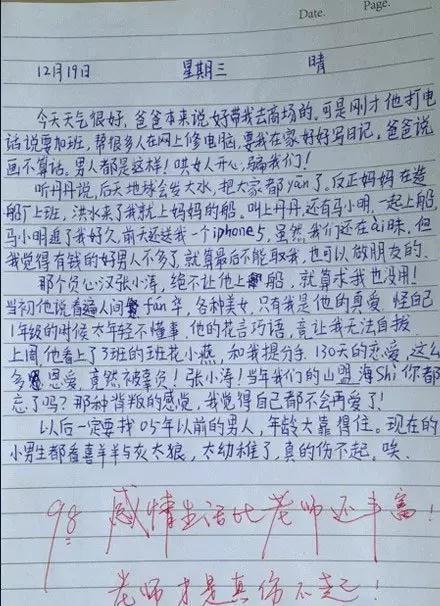 Date.    Page.
12月19日    星期三    晴
今天天气很好，爸爸本来说好带我去商场的，可是刚才他打电
话说要加班，帮很多人在网上修电脑，要我在家好好写日记，爸爸说
画不算话。男人都是这样！哄女人开心，骗我们！
听丹丹说，后天地球会发大水，把大家都yān了。反正妈妈在造
船厂上班，洪水来了我就上妈妈的船。叫上丹丹，还有马小明，一起上船，
马小明追了我好久，前天还送我一个iphone5，虽然我们还在ài昧，但
我觉得有钱的好男人不多了，就算最后不能取我，也可以做朋友的。
那个负心汉张小涛，绝不让他上船，就算求我也没用！
当初他说看遍人间fán华，各种美女，只有我是他的真爱，怪自己
1年级的时候太年轻不懂事，他的花言巧语，竟让我无法自拔
上周，他看上了3班的班花小燕，和我提分手，130天的恋爱，这么
多恩爱，竟然被辜负！张小涛！当年我们的山盟海Shi你都
忘了吗？那种背叛的感觉，我觉得自己都不会再爱了！
以后一定要找05年以前的男人，年龄大靠得住。现在的
小男生都看喜羊羊与灰太狼，太幼稚了，真的伤不起，唉、
98 感情生活比老师还丰富！
老师才是真伤不起！